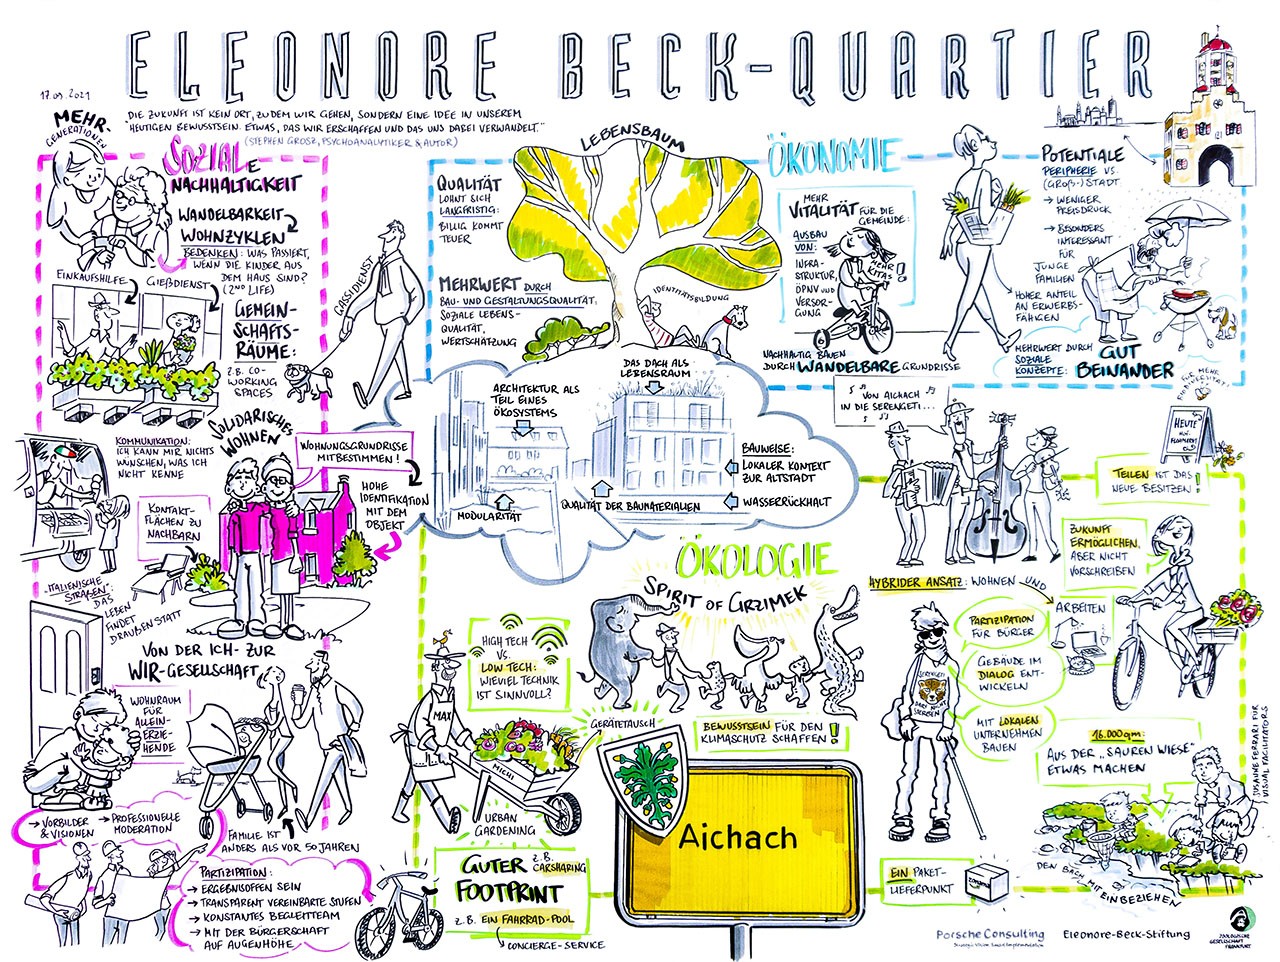 ELEONORE BECK-QUARTIER
17.09.2021
„DIE ZUKUNFT IST KEIN ORT, ZU DEM WIR GEHEN, SONDERN EINE IDEE IN UNSEREM
HEUTIGEN BEWUSSTSEIN. ETWAS, DAS WIR ERSCHAFFEN UND DAS UNS DABEI VERWANDELT.“
(STEPHEN GROSZ, PSYCHOANALYTIKER & AUTOR)
MEHR-
GENERATIONEN
SOZIALE
NACHHALTIGKEIT
WANDELBARKEIT
WOHNZYKLEN
BEDENKEN: WAS PASSIERT,
WENN DIE KINDER AUS
DEM HAUS SIND?
(2ND LIFE)
EINKAUFSHILFE
GIEßDIENST
GEMEIN-
SCHAFTS-
RÄUME:
Z.B. CO-
WORKING
SPACES
GASSIDIENST
SOLIDARISCHES
WOHNEN
KOMMUNIKATION:
ICH KANN MIR NICHTS
WÜNSCHEN, WAS ICH
NICHT KENNE
WOHNUNGSGRUNDRISSE
MITBESTIMMEN!
HOHE
IDENTIFIKATION
MIT DEM
OBJEKT
KONTAKT-
FLÄCHEN ZU
NACHBARN
„ITALIENISCHE
STRAßEN“:
DAS
LEBEN
FINDET
DRAUßEN STATT
VON DER ICH- ZUR
WIR-GESELLSCHAFT
WOHNRAUM
FÜR
ALLEIN-
ERZIE-
HENDE
→ VORBILDER
& VISIONEN
→ PROFESSIONELLE
MODERATION
FAMILIE IST
ANDERS ALS VOR 50 JAHREN
PARTIZIPATION:
→ ERGEBNISOFFEN SEIN
→ TRANSPARENT VEREINBARTE STUFEN
→ KONSTANTES BEGLEITTEAM
→ MIT DER BÜRGERSCHAFT
AUF AUGENHÖHE
LEBENSBAUM
QUALITÄT
LOHNT SICH
LANGFRISTIG:
BILLIG KOMMT
TEUER
MEHRWERT DURCH
BAU- UND GESTALTUNGSQUALITÄT,
SOZIALE LEBENS-
QUALITÄT,
WERTSCHÄTZUNG
IDENTITÄTSBILDUNG
DAS DACH ALS
LEBENSRAUM
ARCHITEKTUR ALS
TEIL EINES
ÖKOSYSTEMS
BAUWEISE:
LOKALER KONTEXT
ZUR ALTSTADT
WASSERRÜCKHALT
MODULARITÄT
QUALITÄT DER BAUMATERIALIEN
ÖKONOMIE
MEHR
VITALITÄT FÜR DIE
GEMEINDE:
AUSBAU
VON:
INFRA-
STRUKTUR,
ÖPNV UND
VERSOR-
GUNG
MEHR
KITAS!
NACHHALTIG BAUEN
DURCH WANDELBARE GRUNDRISSE
POTENTIALE
PERIPHERIE VS.
(GROß-)STADT
→ WENIGER
PREISDRUCK
→ BESONDERS
INTERESSANT
FÜR
JUNGE
FAMILIEN
HOHER ANTEIL
AN ERWERBS-
FÄHIGEN
MEHRWERT DURCH
SOZIALE
KONZEPTE:
GUT
BEINANDER
„VON AICHACH
IN DIE SERENGETI...
HEUTE
TEILEN IST DAS
NEUE BESITZEN!
ZUKUNFT
ERMÖGLICHEN,
ABER NICHT
VORSCHREIBEN
HYBRIDER ANSATZ: WOHNEN UND
ARBEITEN
PARTIZIPATION
FÜR BÜRGER
GEBÄUDE IM
DIALOG ENT-
WICKELN
MIT LOKALEN
UNTERNEHMEN
BAUEN
SERENGETI
DARF NICHT
STERBEN
16.000 qm:
AUS DER „SAUREN WIESE“
ETWAS MACHEN
DEN BACH MIT EINBEZIEHEN
EIN PAKET-
LIEFERPUNKT
ÖKOLOGIE
SPIRIT OF GRZIMEK
HIGH TECH
VS.
LOW TECH:
WIEVIEL TECHNIK
IST SINNVOLL?
BEWUSSTSEIN FÜR DEN
KLIMASCHUTZ SCHAFFEN!
GERÄTETAUSCH
MAX
MICHI
URBAN
GARDENING
GUTER
FOOTPRINT
Z.B.
CARSHARING
Z.B. EIN FAHRRAD-POOL
CONCIERGE-SERVICE
Aichach
SUSANNE FERRARI FÜR
VISUAL FACILITATORS
Porsche Consulting
Eleonore-Beck-Stiftung
ZOOLOGISCHE
GESELLSCHAFT
FRANKFURT